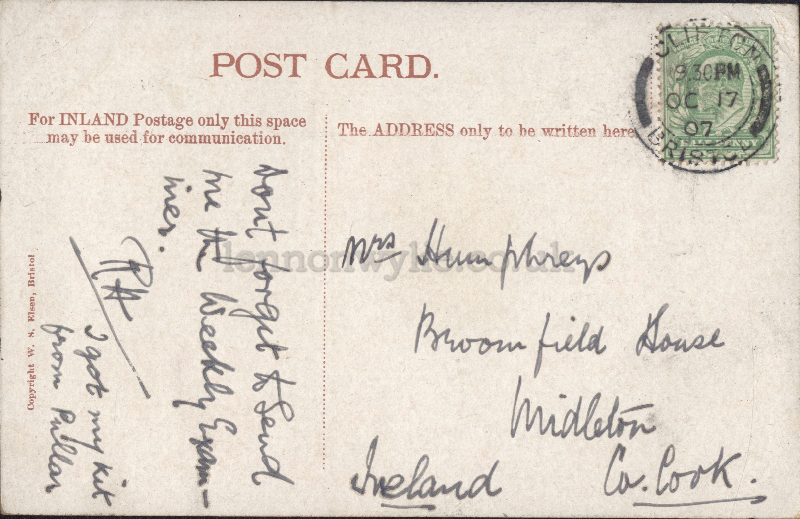 POST CARD.
For INLAND Postage only this space
may be used for communication.
The ADDRESS only to be written here
CLIFTON
9.30PM
OC 17
07
BRISTOL
Dont forget to Send
me the Weekly Exam-
iner.
RH
I got my kit
from Pullar
Mrs Humphreys
Broomfield House
Midleton
Co. Cork.
Ireland
Copyright W. S. Elsen, Bristol
lennonwylie.co.uk